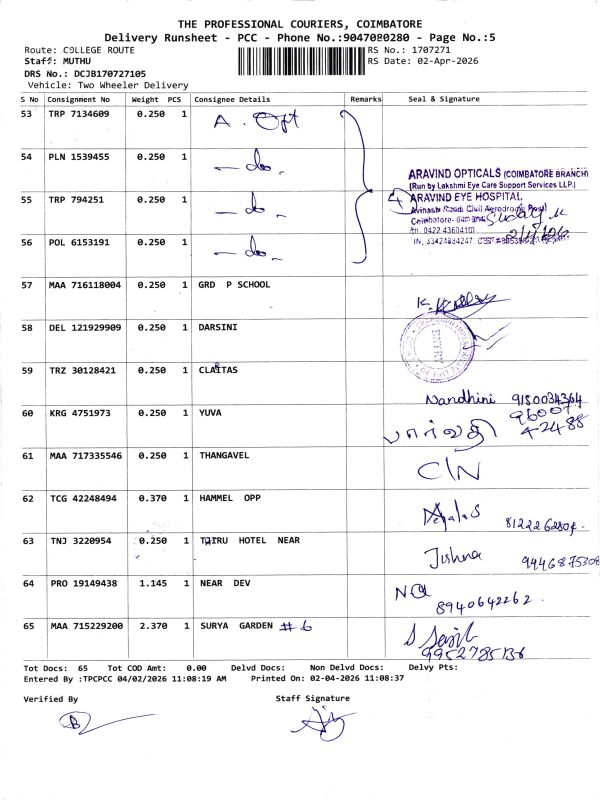 THE PROFESSIONAL COURIERS, COIMBATORE
Delivery Runsheet - PCC - Phone No.:9047080280 - Page No.:5
Route: COLLEGE ROUTE RS No.: 1707271
Staff: MUTHU RS Date: 02-Apr-2026
DRS No.: DCJB170727105
Vehicle: Two Wheeler Delivery
S No Consignment No Weight PCS Consignee Details Remarks Seal & Signature
53 TRP 7134609 0.250 1 A. Opt
54 PLN 1539455 0.250 1 — do.
55 TRP 794251 0.250 1 — do.
56 POL 6153191 0.250 1 — do.
4
ARAVIND OPTICALS (COIMBATORE BRANCH)
(Run by Lakshmi Eye Care Support Services LLP.)
ARAVIND EYE HOSPITAL
Avinashi Road, Civil Aerodrome Post
Coimbatore-
57 MAA 716118004 0.250 1 GRD P SCHOOL
58 DEL 121929909 0.250 1 DARSINI
ENTRY
59 TRZ 30128421 0.250 1
Nandhini 9150034364
60 KRG 4751973 0.250 1 YUVA
96007
42488
பார்வதி
61 MAA 717335546 0.250 1 THANGAVEL C/N
62 TCG 42248494 0.370 1 HAMMEL OPP
63 TNJ 3220954 0.250 1 HOTEL NEAR
Jishna 9446875308
64 PRO 19149438 1.145 1 NEAR DEV
8940642262.
65 MAA 715229200 2.370 1 SURYA GARDEN #6
9952785136
Tot Docs: 65 Tot COD Amt: 0.00 Delvd Docs: Non Delvd Docs: Delvy Pts:
Entered By :TPCPCC 04/02/2026 11:08:19 AM Printed On: 02-04-2026 11:08:37
Verified By Staff Signature